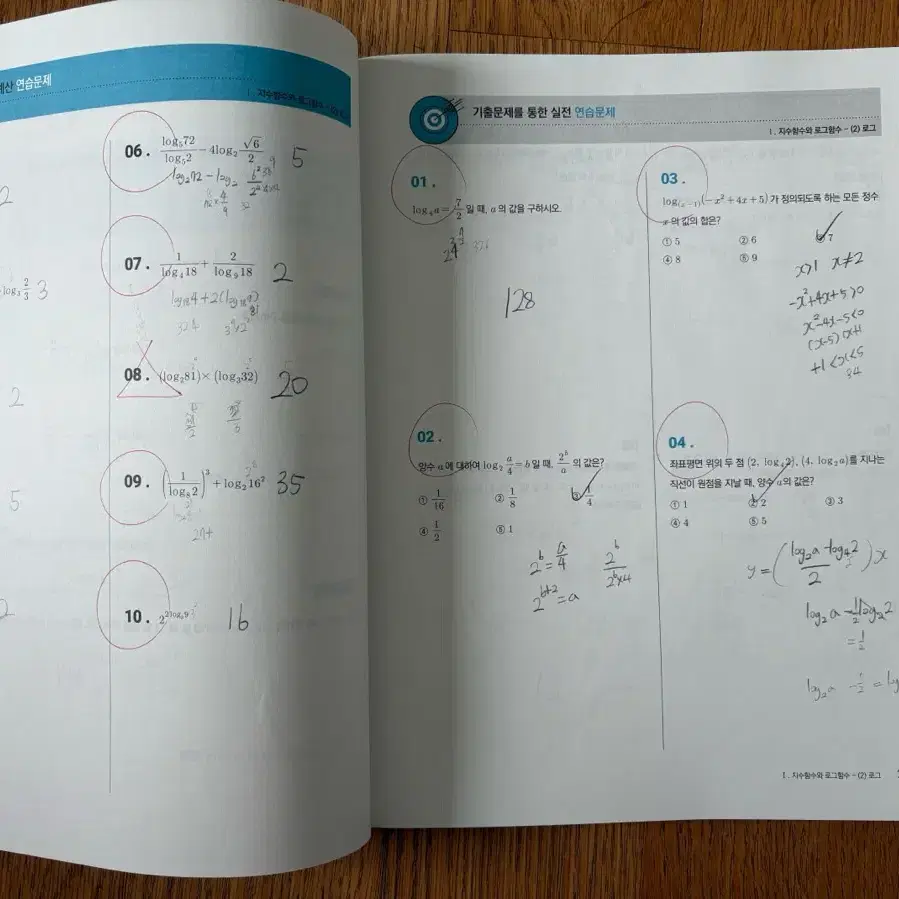 계산 연습문제
Ⅰ. 지수함수와 로그함수 - (2) 로그
2
log₃ 2/3 3
2
5
2
06. log₅72/log₅2 - 4log₂ √6/2 5
log₂72 - log₂
07. 1/log₄18 + 2/log₉18 2
324
08. (log₂81)×(log₃32) 20
09. (1/log₈2)³ + log₂16² 35
27+
10. 16
기출문제를 통한 실전 연습문제
Ⅰ. 지수함수와 로그함수 - (2) 로그
01.
log₄a = 7/2 일 때, a의 값을 구하시오.
128
02.
양수 a에 대하여 log₂ a/4 = b일 때, 2ᵇ/a 의 값은?
① 1/16 ② 1/8 ③ 1/4
④ 1/2 ⑤ 1
2ᵇ = a/4 2ᵇ/2ᵇ×4
2ᵇ⁺² = a
03.
log₍ₓ₋₁₎(-x²+4x+5)가 정의되도록 하는 모든 정수
x의 값의 합은?
① 5 ② 6 ③ 7
④ 8 ⑤ 9
x>1 x≠2
-x²+4x+5>0
x²-4x-5<0
(x-5)(x+1
+1<x<5
34
04.
좌표평면 위의 두 점 (2, log₄2), (4, log₂a)를 지나는
직선이 원점을 지날 때, 양수 a의 값은?
① 1 ② 2 ③ 3
④ 4 ⑤ 5
y = (log₂a - log₄2/2)x
log₂a - 1/2log₂2
= 1/2
log₂a - 1/2 = log
Ⅰ. 지수함수와 로그함수 - (2) 로그